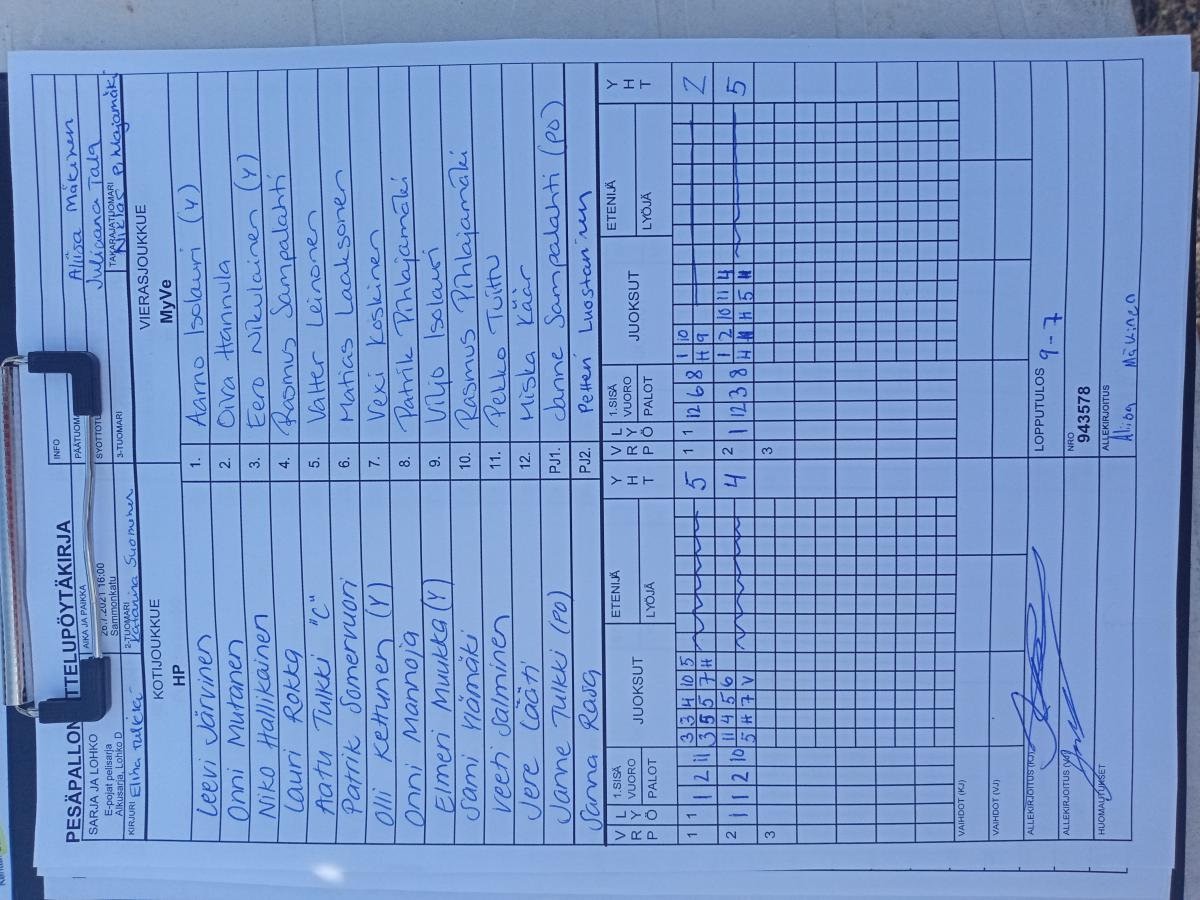 PESÄPALLON OTTELUPÖYTÄKIRJA
SARJA JA LOHKO
E-pojat pelisarja
Alkusarja, Lohko D
AIKA JA PAIKKA
26.7.2021 16:00
Sammonkatu
INFO
PÄÄTUOM
Aliisa Mäkinen
SYÖTTÖTU
Juliaana Tala
KIRJURI Elina
2-TUOMARI
Katariina Suominen
3-TUOMARI
TAKARAJATUOMARI
Niklas Pihlajamäki
KOTIJOUKKUE
HP
VIERASJOUKKUE
MyVe
Leevi Järvinen 1. Aarno Isolauri (Y)
Onni Mutanen 2. Oiva Hannula
Niko Hallikainen 3. Eero Nikulainen (Y)
Lauri Rokka 4. Rasmus Sampalahti
Aatu Tulkki "C" 5. Valter Leinonen
Patrik Somervuori 6. Matias Laaksonen
Olli Kettunen (Y) 7. Vexi Koskinen
Onni Mannoja 8. Patrik Pihlajamäki
Elmeri Muukka (Y) 9. Viljo Isolauri
Sami Ylämäki 10. Rasmus Pihlajamäki
Veeti Salminen 11. Pekko Tuittu
Jere Lääti 12. Miska Käär
Janne Tulkki (PO) PJ1. Janne Sampalahti (PO)
Sanna Rasa PJ2. Petteri Luostarinen
V R P L Y Ö 1.SISÄ VUORO PALOT JUOKSUT ETENIJÄ LYÖJÄ Y H T V R P L Y Ö 1.SISÄ VUORO PALOT JUOKSUT ETENIJÄ LYÖJÄ Y H T
1 1 1 2 11 3 3 4 10 5 5 1 1 12 6 8 1 10 2
3 5 5 7 H H 9
2 1 1 2 10 11 4 5 6 4 2 1 12 3 8 1 2 10 11 4 5
5 H 7 V H H H 5 H
3 3
VAIHDOT (KJ)
VAIHDOT (VJ)
ALLEKIRJOITUS (KJ)
LOPPUTULOS 9-7
ALLEKIRJOITUS (VJ)
NRO
943578
HUOMAUTUKSET
ALLEKIRJOITUS
Aliisa Mäkinen